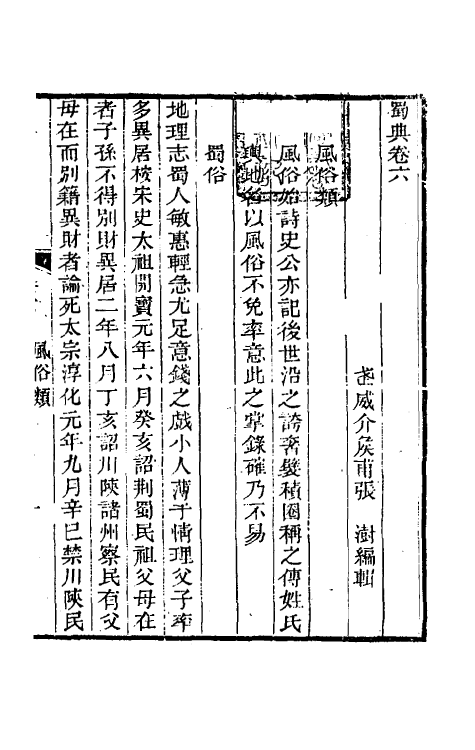 蜀典卷六
武威介侯甫張　澍編輯
風俗類
風俗始詩史公亦記後世沿之誇奢襞積圈稱之傳姓氏
輿地各以風俗不免率意此之掌錄確乃不易
蜀俗
地理志蜀人敏惠輕急尤足意錢之戯小人薄于情理父子率
多異居按宋史太祖開寶元年六月癸亥詔荆蜀民祖父母在
者子孫不得別財異居二年八月丁亥詔川陝諸州察民有父
母在而別籍異財者論死太宗淳化元年九月辛巳禁川陝民
風俗類
一